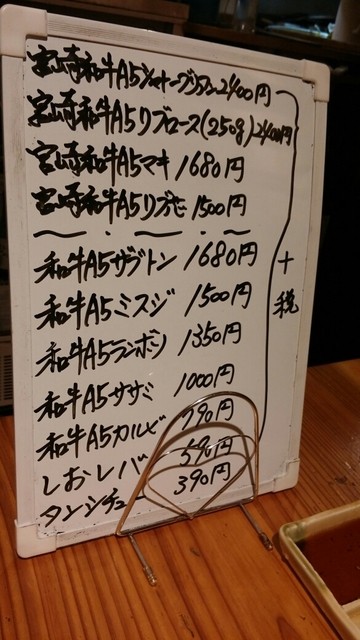 宮崎和牛A5シャトーブリアン2400円
宮崎和牛A5リブロース(250g)2400円
宮崎和牛A5マキ 1680円
宮崎和牛A5リブ芯 1500円
和牛A5ザブトン 1680円
和牛A5ミスジ 1500円
和牛A5ランボソ 1350円
和牛A5ササミ 1000円
和牛A5カルビ 790円
しおレバ 590円
タンシチュー 390円
+税